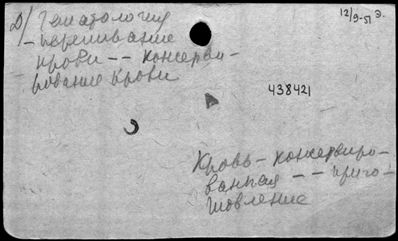 Д/ Гематология
12/9-51 Э.
– переливание
крови – – консерви-
рование крови
438421
Кровь – консервиро-
ванная – – приго-
товление